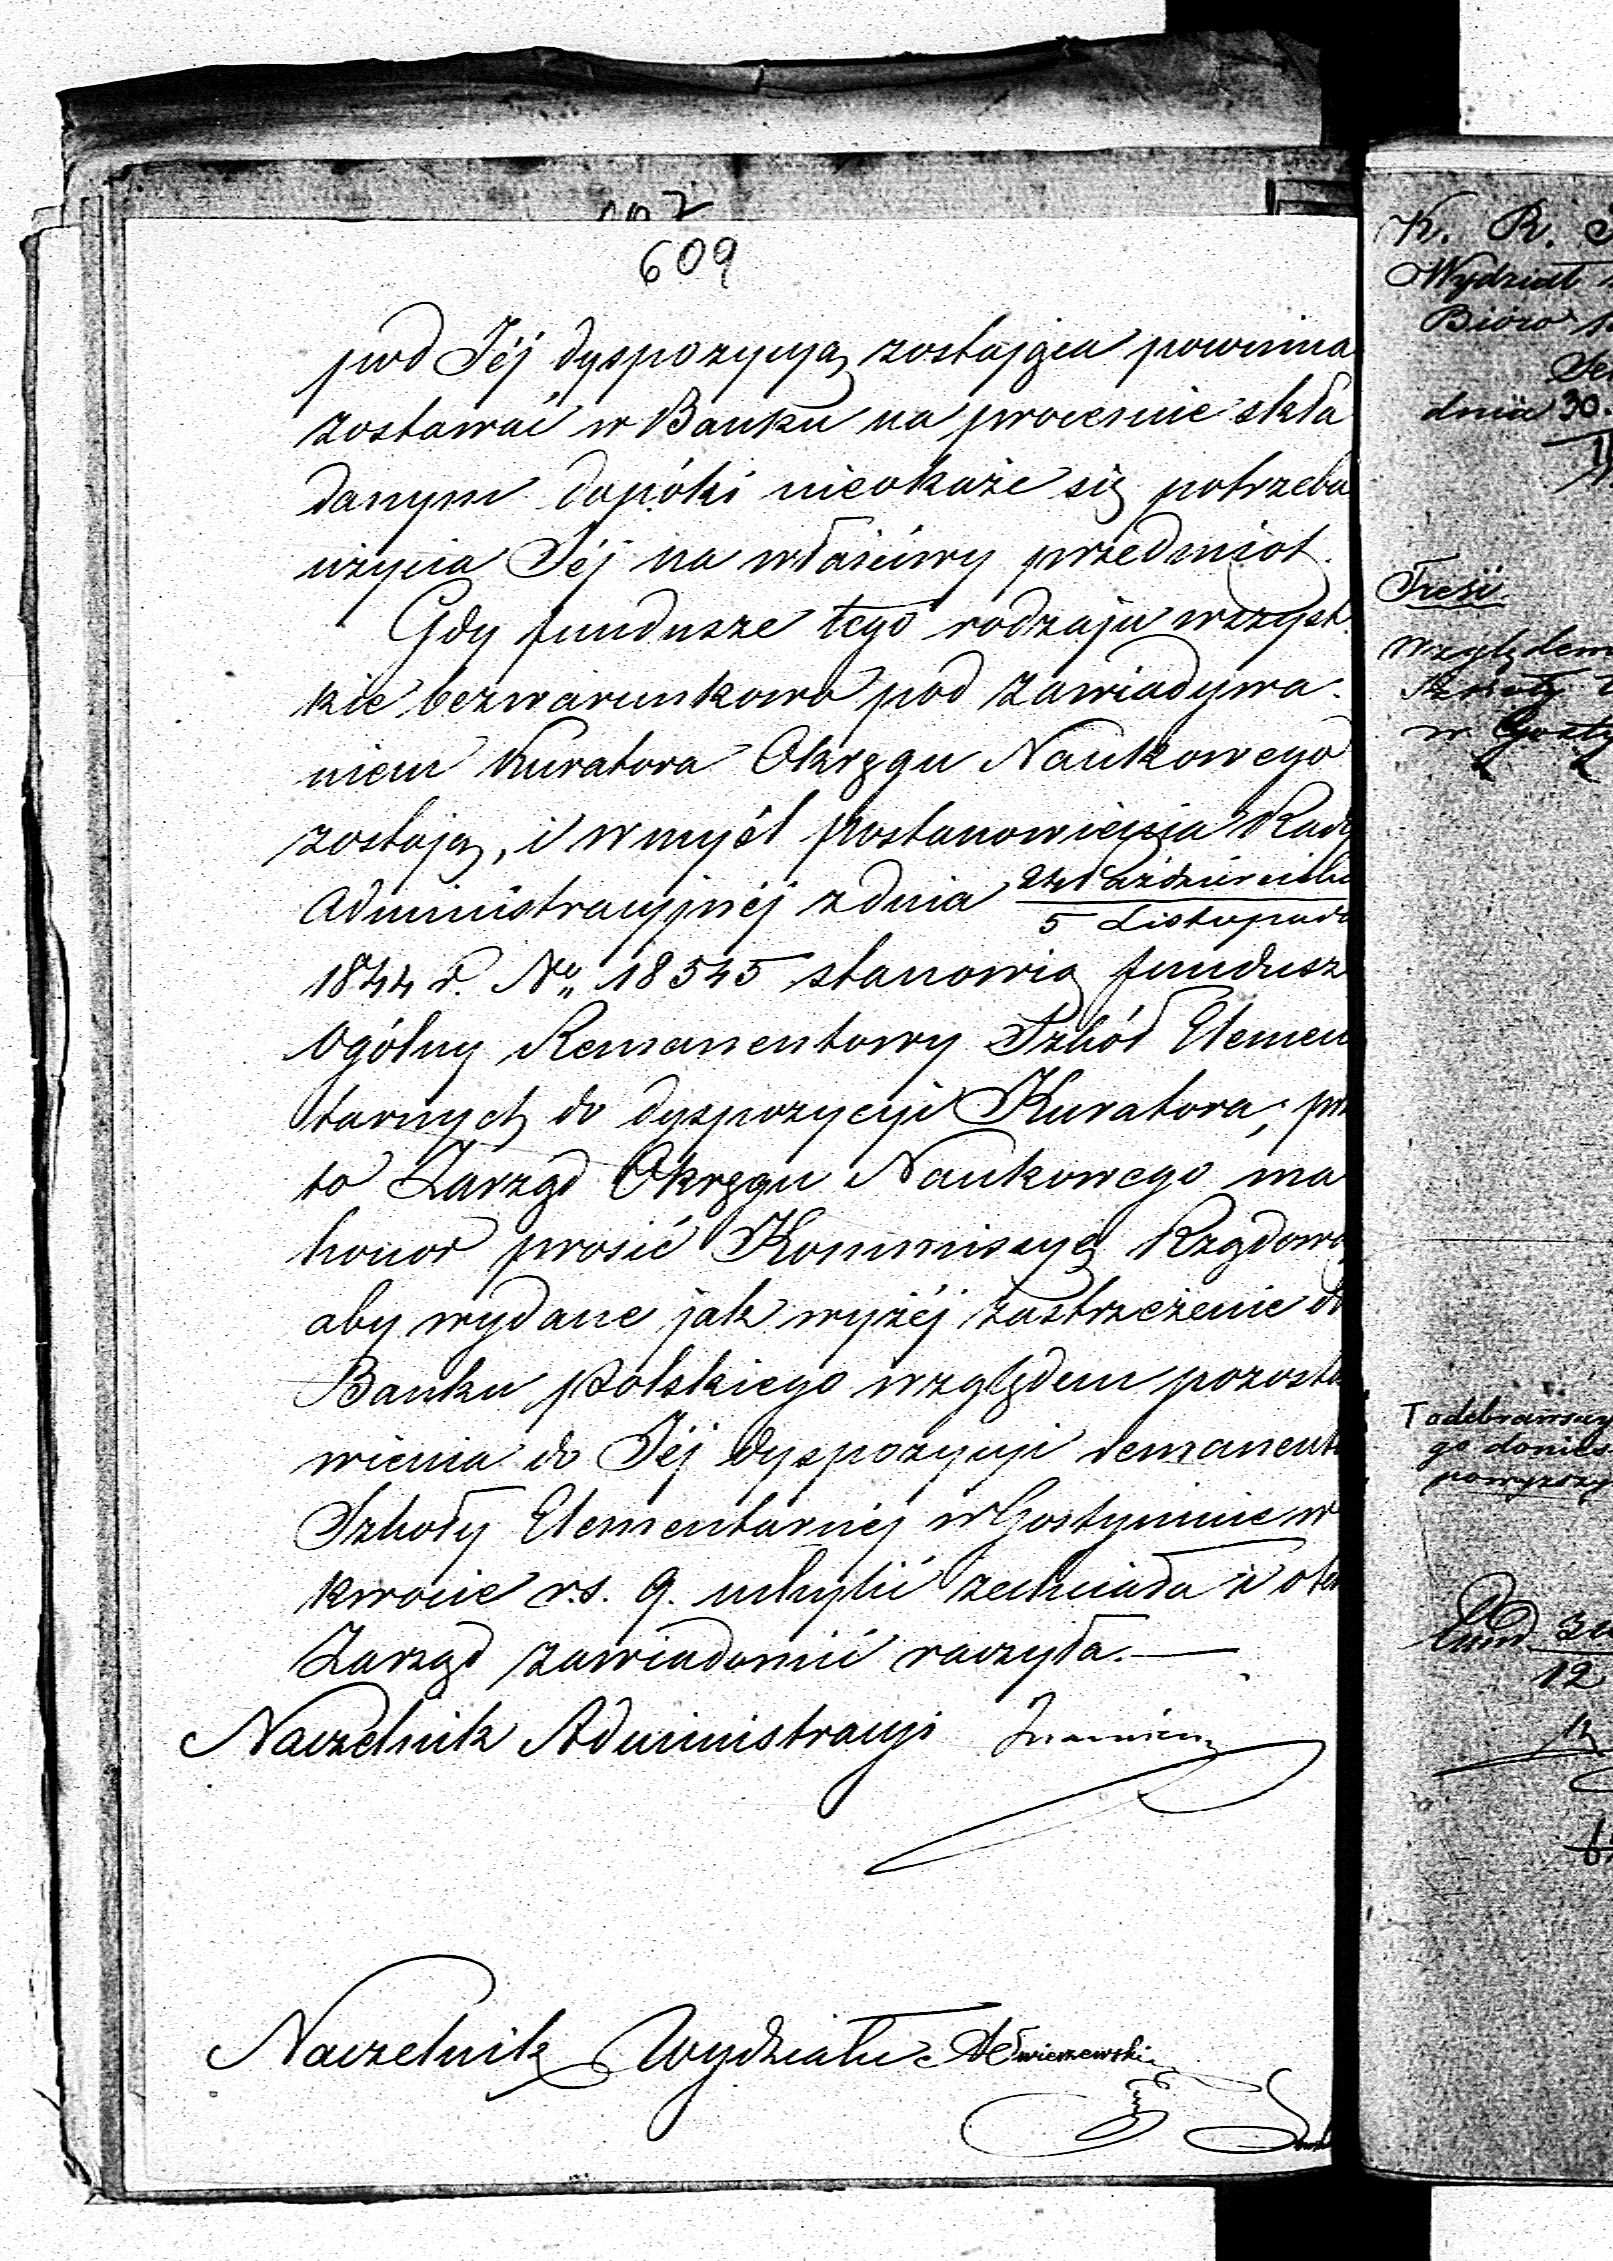 609
pod Jéj dyspozycyą zostająca powinna
zostawać w Banku na procencie skła
danym dopóki nieokaże się potrzeba
użycia Jéj na właściwy przedmiot.
Gdy fundusze tego rodzaju wszyst-
kie bezwarunkowo pod zawiadywa-
niem Kuratora Okręgu Naukowego
zostają, i w myśl postanowienia Rady
Administracyjnéj z dnia 24 Października
5 Listopada
1844 r. No 18545 stanowią fundusz
Ogólny Remanentowy Szkół Elemen
tarnych do dyspozycyi Kuratora; prze
to Zarząd Okręgu Naukowego ma
honor prosić Kommissyę Rządową
aby wydane jak wyżéj zastrzeżenie do
Banku Polskiego względem pozosta
wienia do Jéj dyspozycyi remanentu
Szkoły Elementarnéj w Gostyninie w
kwocie r.s. 9. uchylić zechciała i o tém
Zarząd zawiadomić raczyła.—
Naczelnik Administracyi
Naczelnik Wydziału
K. R.
Wydział
Bióro
dnia 30.
Treść
Względem
Szkoły
w Gosty
odebrawszy
go donies
powyższy
12